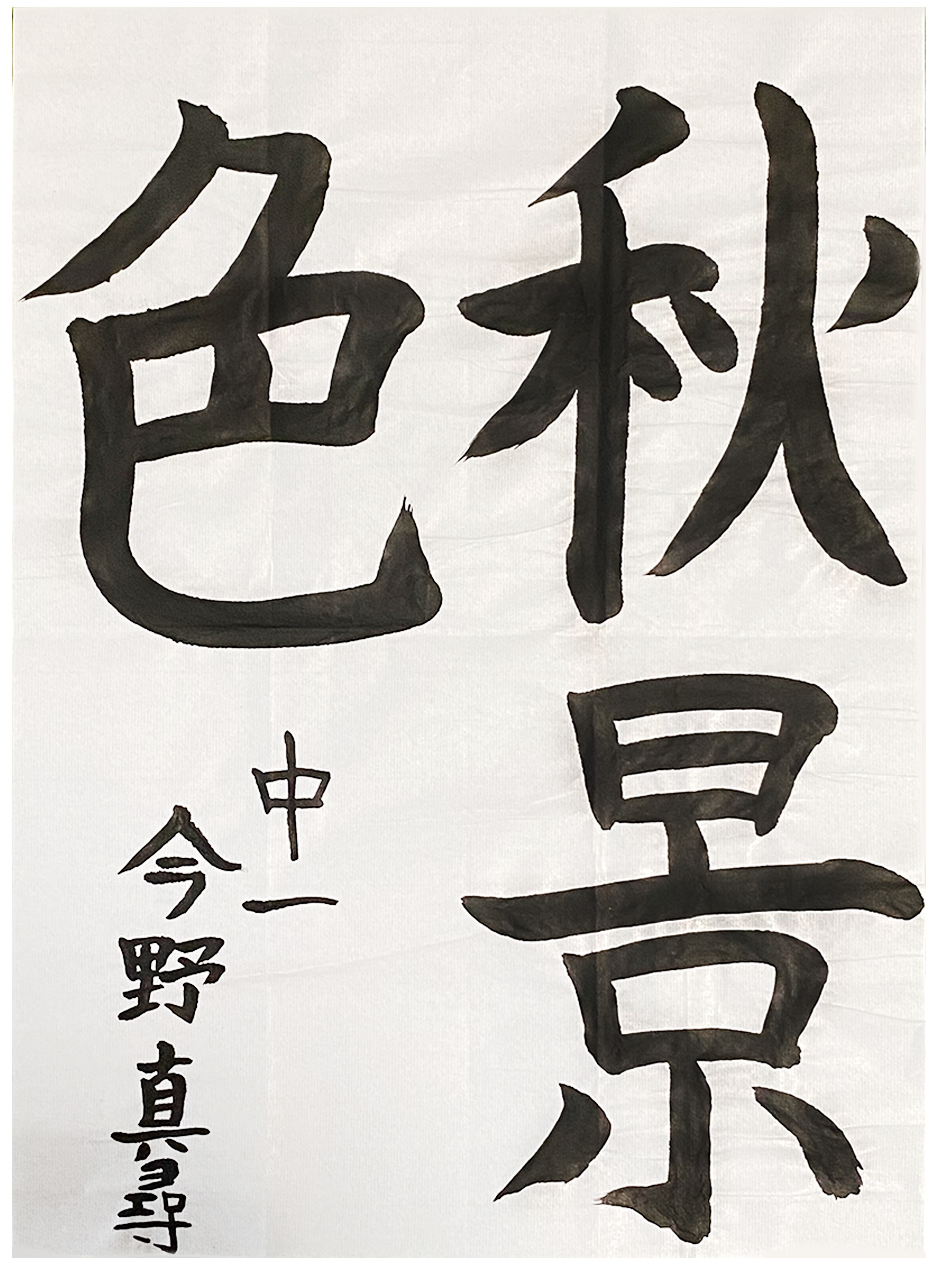 秋景
色
中一
今野真尋